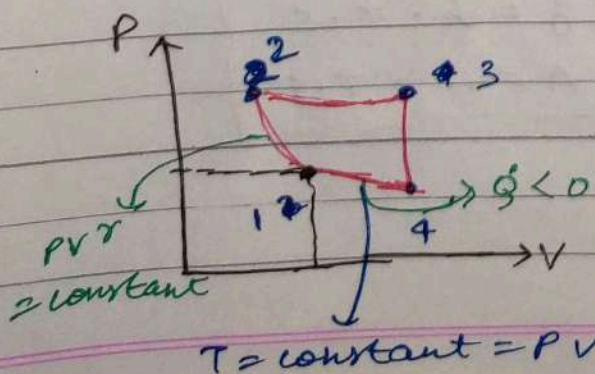 P
2
3
1
4
Q̇ < 0
PVγ
= constant
V
T = constant = PV